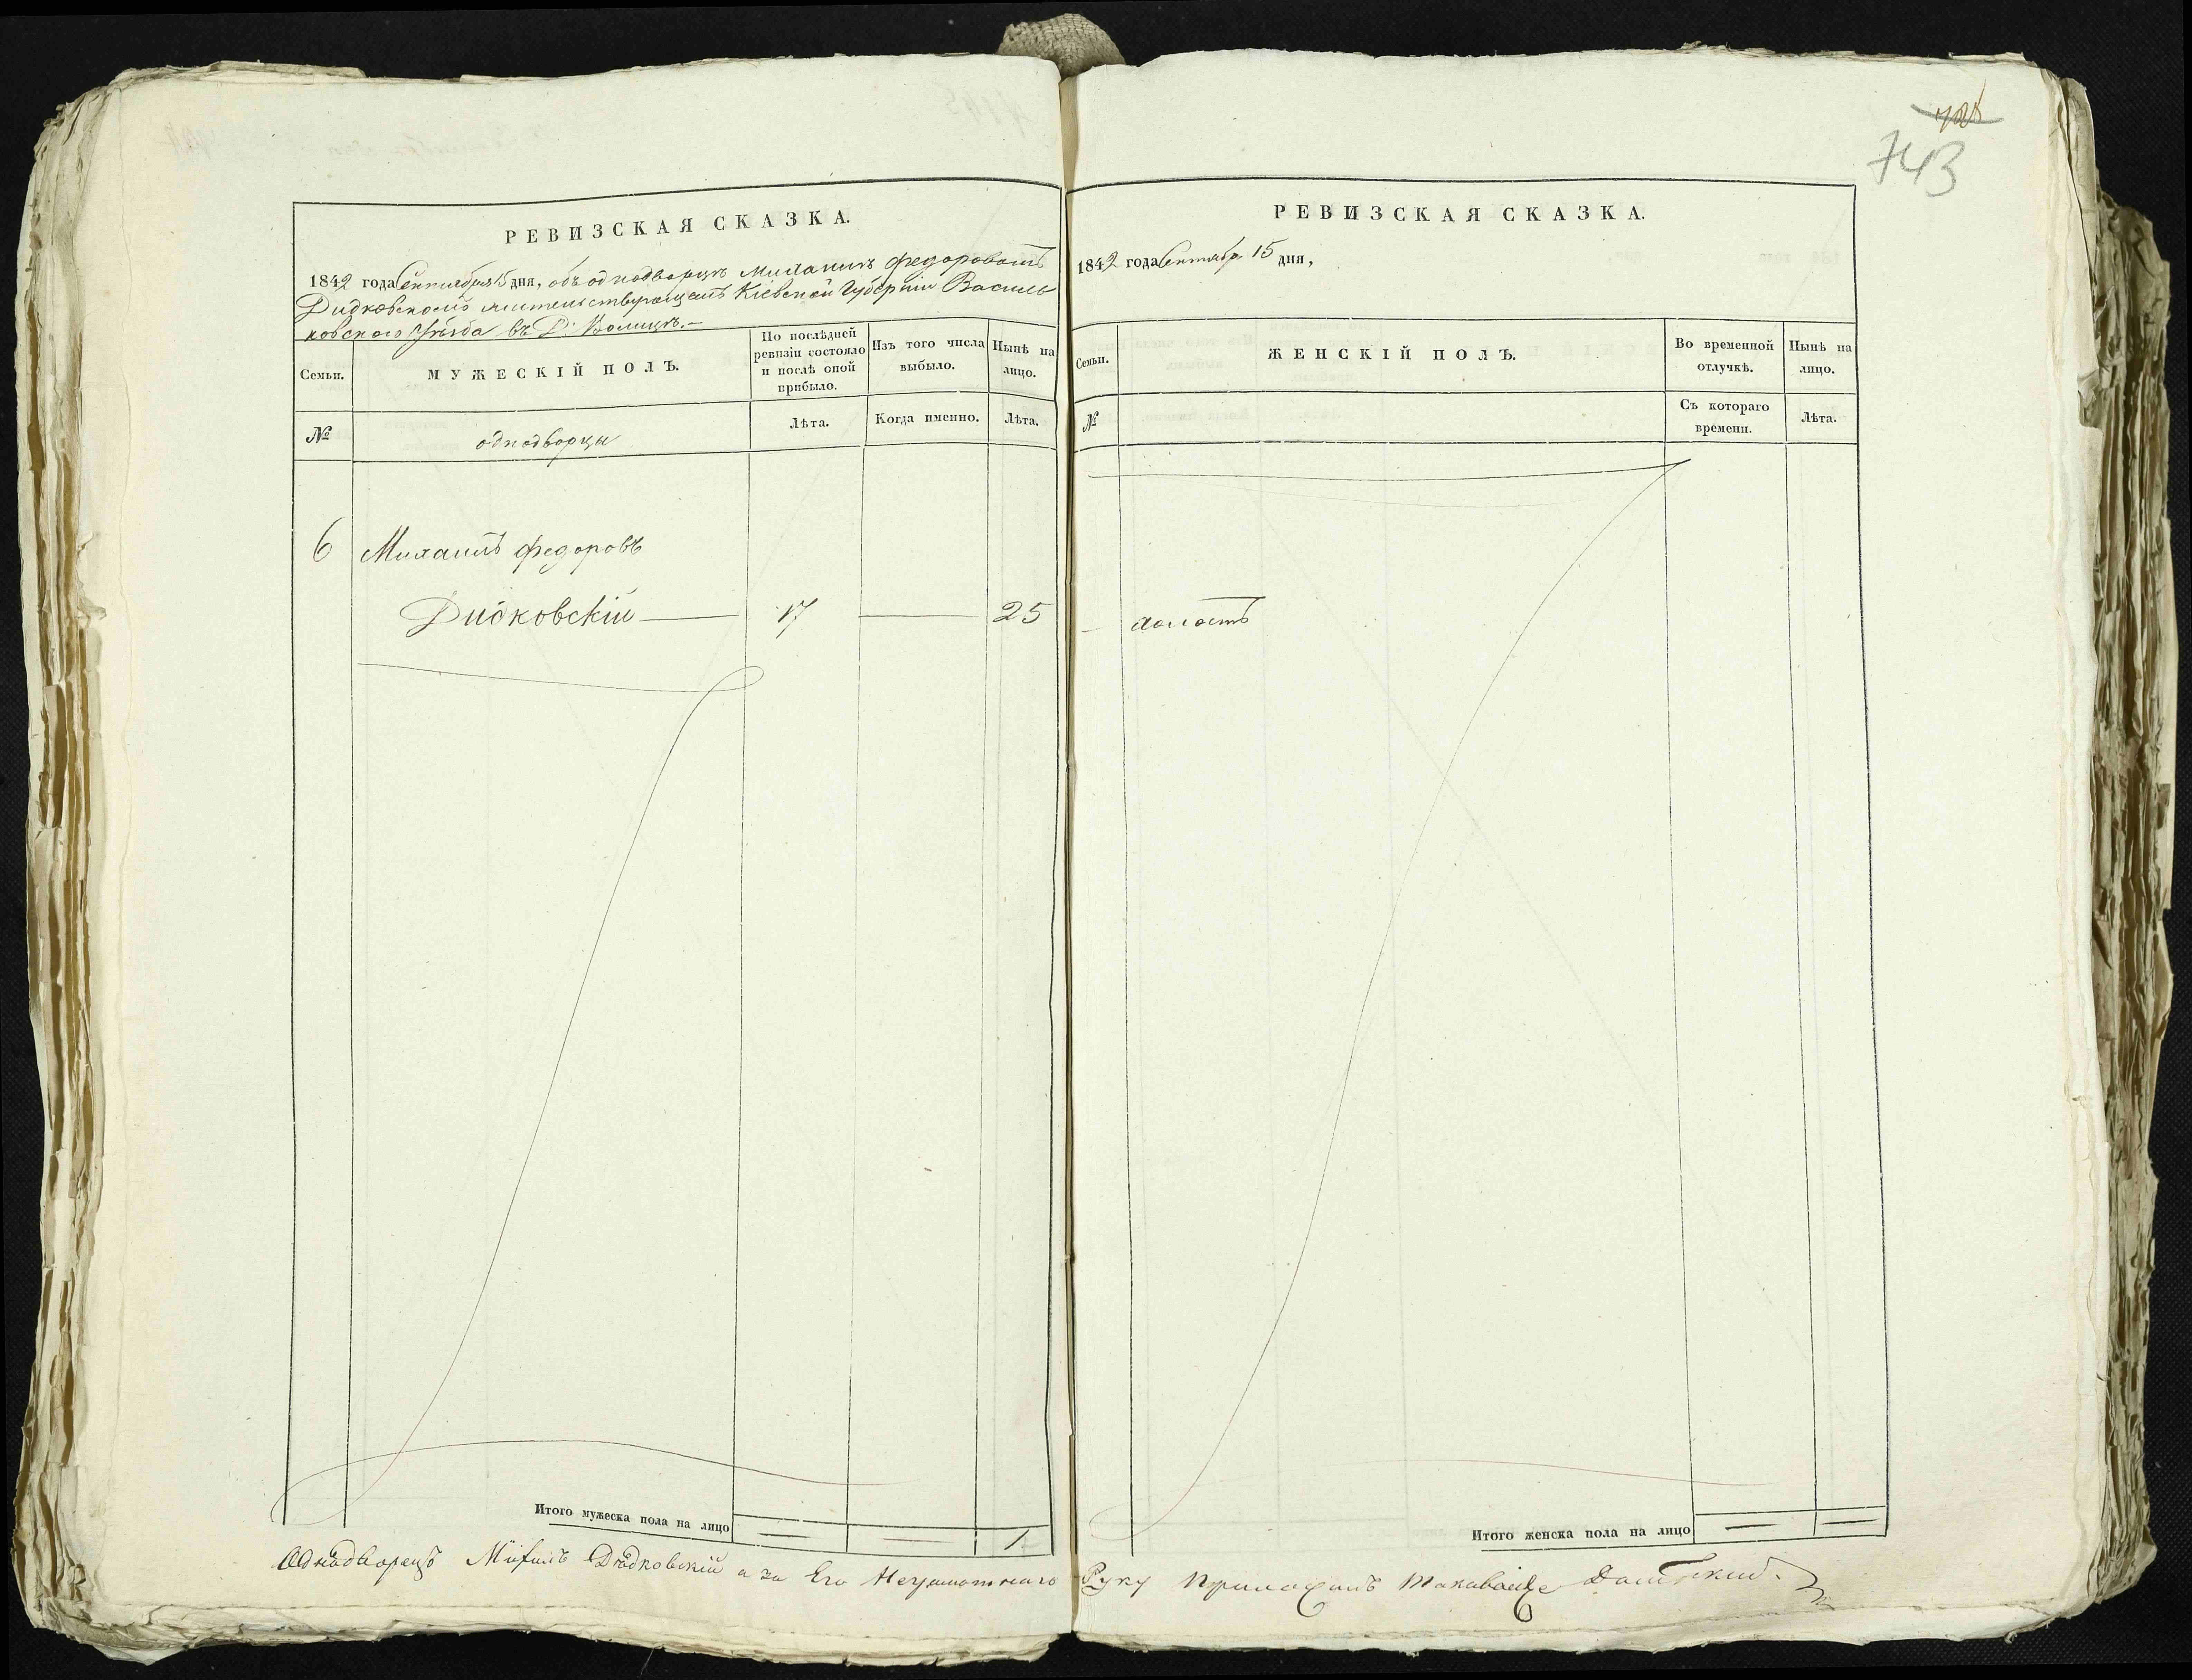 743
РЕВИЗСКАЯ СКАЗКА.
1842 года Сентября 15 дня, объ однодворцѣ Михаилѣ Федоровомъ
Дидковскомъ жительствующемъ Кіевской Губерніи Василь
ковского Уѣзда въ Д. Волицѣ.—
Семьи.
МУЖЕСКІЙ ПОЛЪ.
По послѣдней ревизіи состояло и послѣ оной прибыло.
Изъ того числа выбыло.
Нынѣ на лицо.
№
однодворцы
Лѣта.
Когда именно.
Лѣта.
6 Михаилъ Федоровъ
Дидковскій — 17 — 25
Итого мужеска пола на лицо — — 1
РЕВИЗСКАЯ СКАЗКА.
1842 года Сентября 15 дня,
Семьи.
ЖЕНСКІЙ ПОЛЪ.
Во временной отлучкѣ.
Нынѣ на лицо.
№
Съ котораго времени.
Лѣта.
— холостъ
Итого женска пола на лицо — —
Однадворецъ Михаилъ Дидковскій а за Его Неграмотнаго Руку Приложилъ